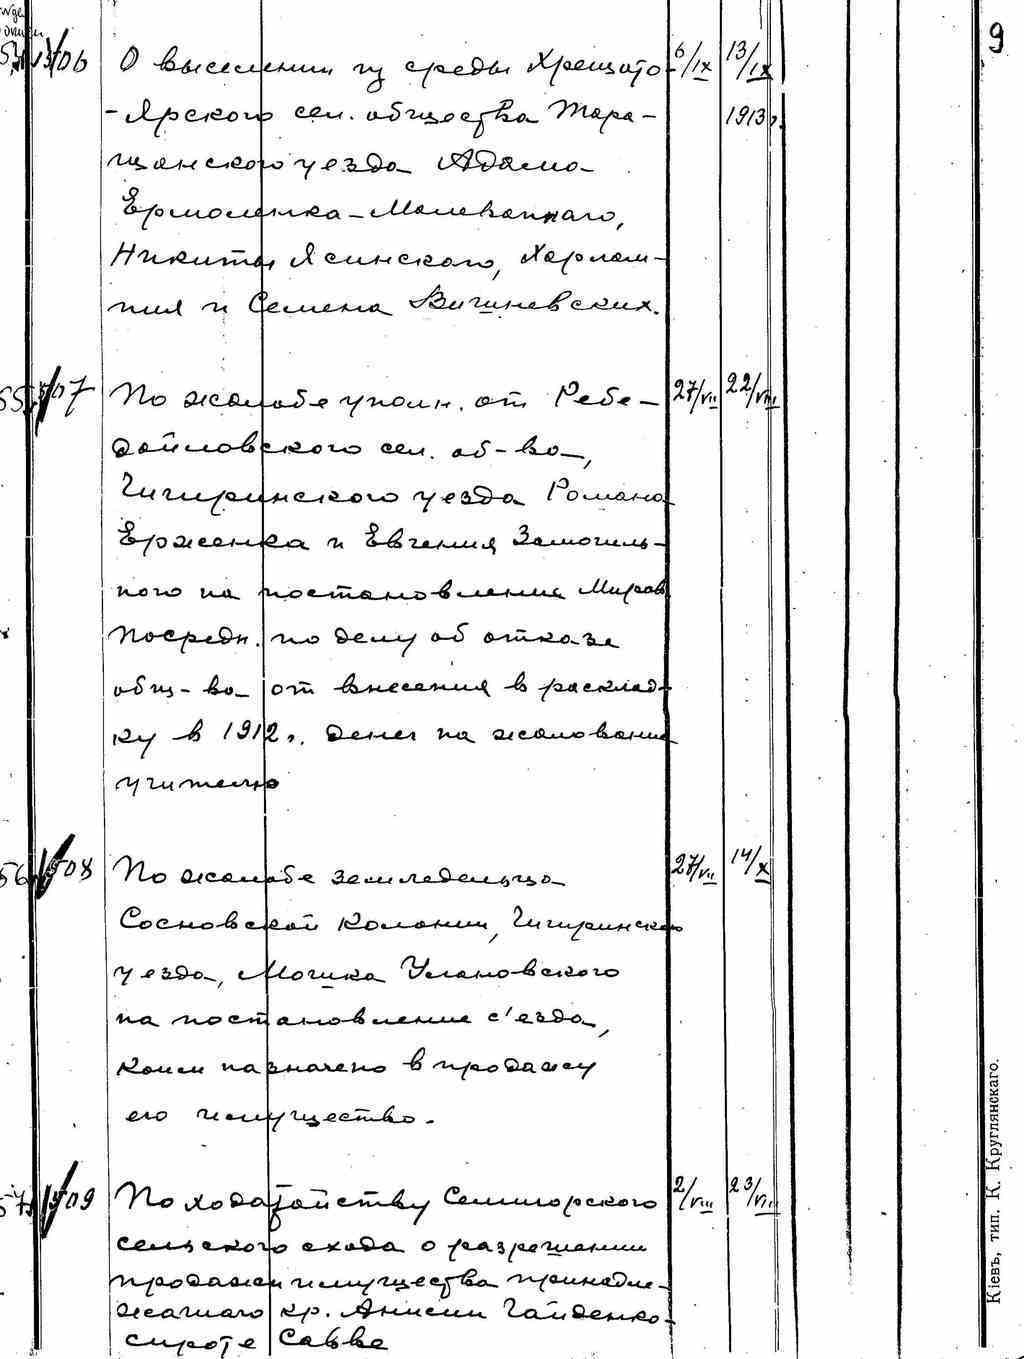 9
06 О выселении из среды Хрещато- 6/IX 13/IX
-Ярского сел. общества Тара- 1913 г.
щанского уезда Адама
Ермоленка-Малеванного,
Никиты Ясинского, Харлам-
пия и Семена Вишневских.
07 По жалобе уполн. от Ребе- 27/VII 22/VIII
дайловского сел. об-ва,
Чигиринского уезда Романа
Ерженка и Евгения Замогиль-
ного на постановление Миров.
посредн. по делу об отказе
общ-ва от внесения в расклад-
ку в 1912 г. денег на жалование
учителю
56 08 По жалобе земледельца 27/VII 14/X
Сосновской колонии, Чигиринского
уезда, Мошка Улановского
на постановление с'езда,
коим назначено в продажу
его имущество.
57 09 По ходатайству Семигорского 2/VIII 23/VIII
сельского схода о разрешении
продажи имущества принадле-
жащаго кр. Анисии Гайденко-
сироте Савве
Кіевъ, тип. К. Круглянскаго.